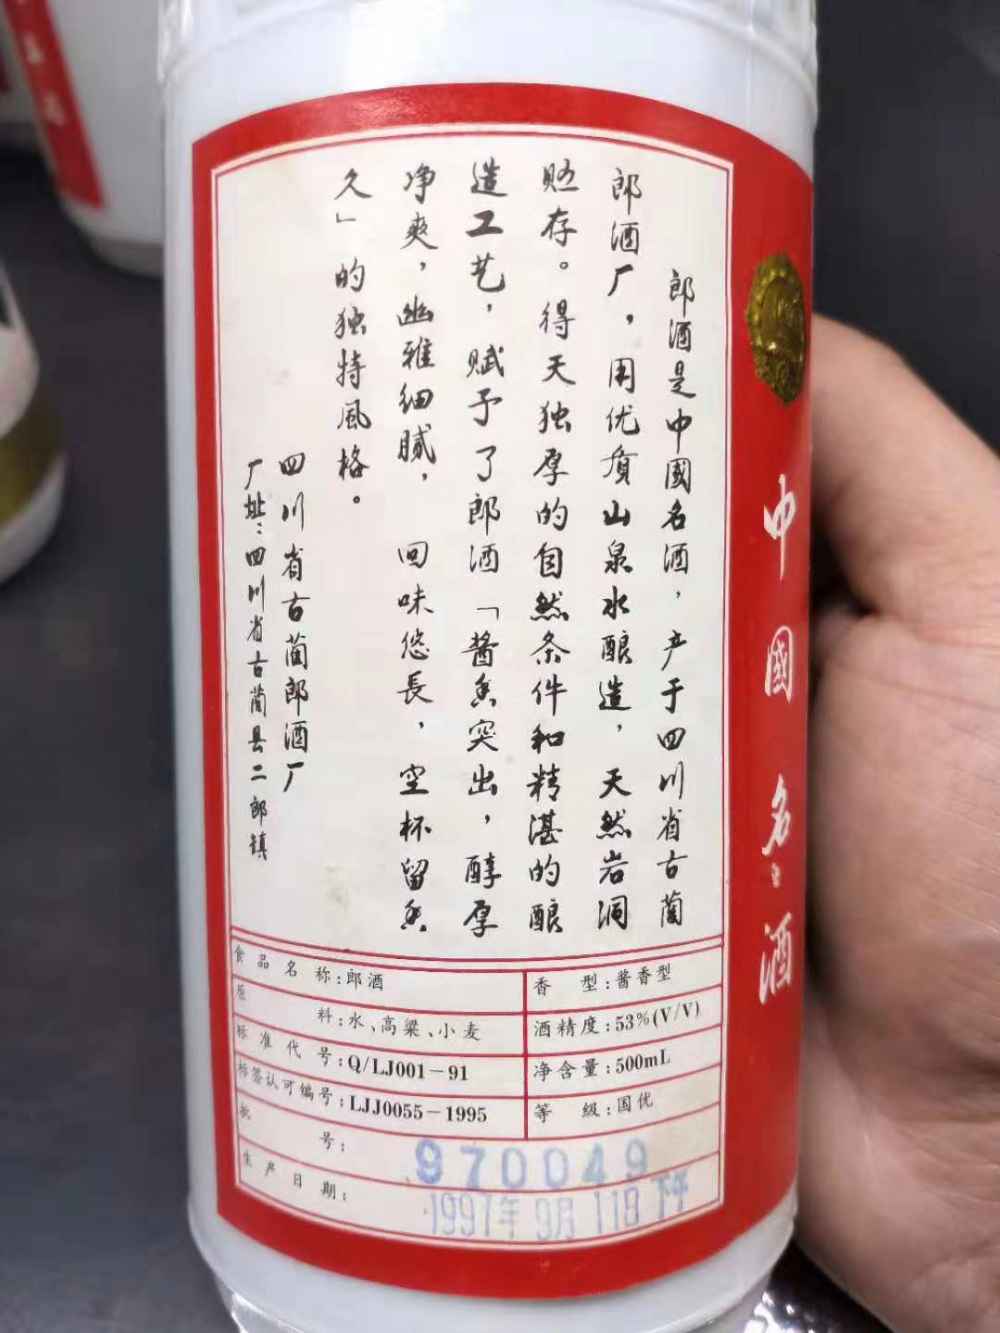 郎酒是中國名酒，产于四川省古蔺
郎酒厂，用优质山泉水酿造，天然岩洞
贮存。得天独厚的自然条件和精湛的酿
造工艺，赋予了郎酒「酱香突出，醇厚
净爽，幽雅细腻，回味悠長，空杯留香
久」的独特風格。
四川省古蔺郎酒厂
厂址：四川省古蔺县二郎镇
食品名称：郎酒
香型：酱香型
原料：水、高粱、小麦
酒精度：53%(V/V)
标准代号：Q/LJ001－91
净含量：500mL
标签认可编号：LJJ0055－1995
等级：国优
批号：970049
生产日期：1997年9月11日下午
中國名酒